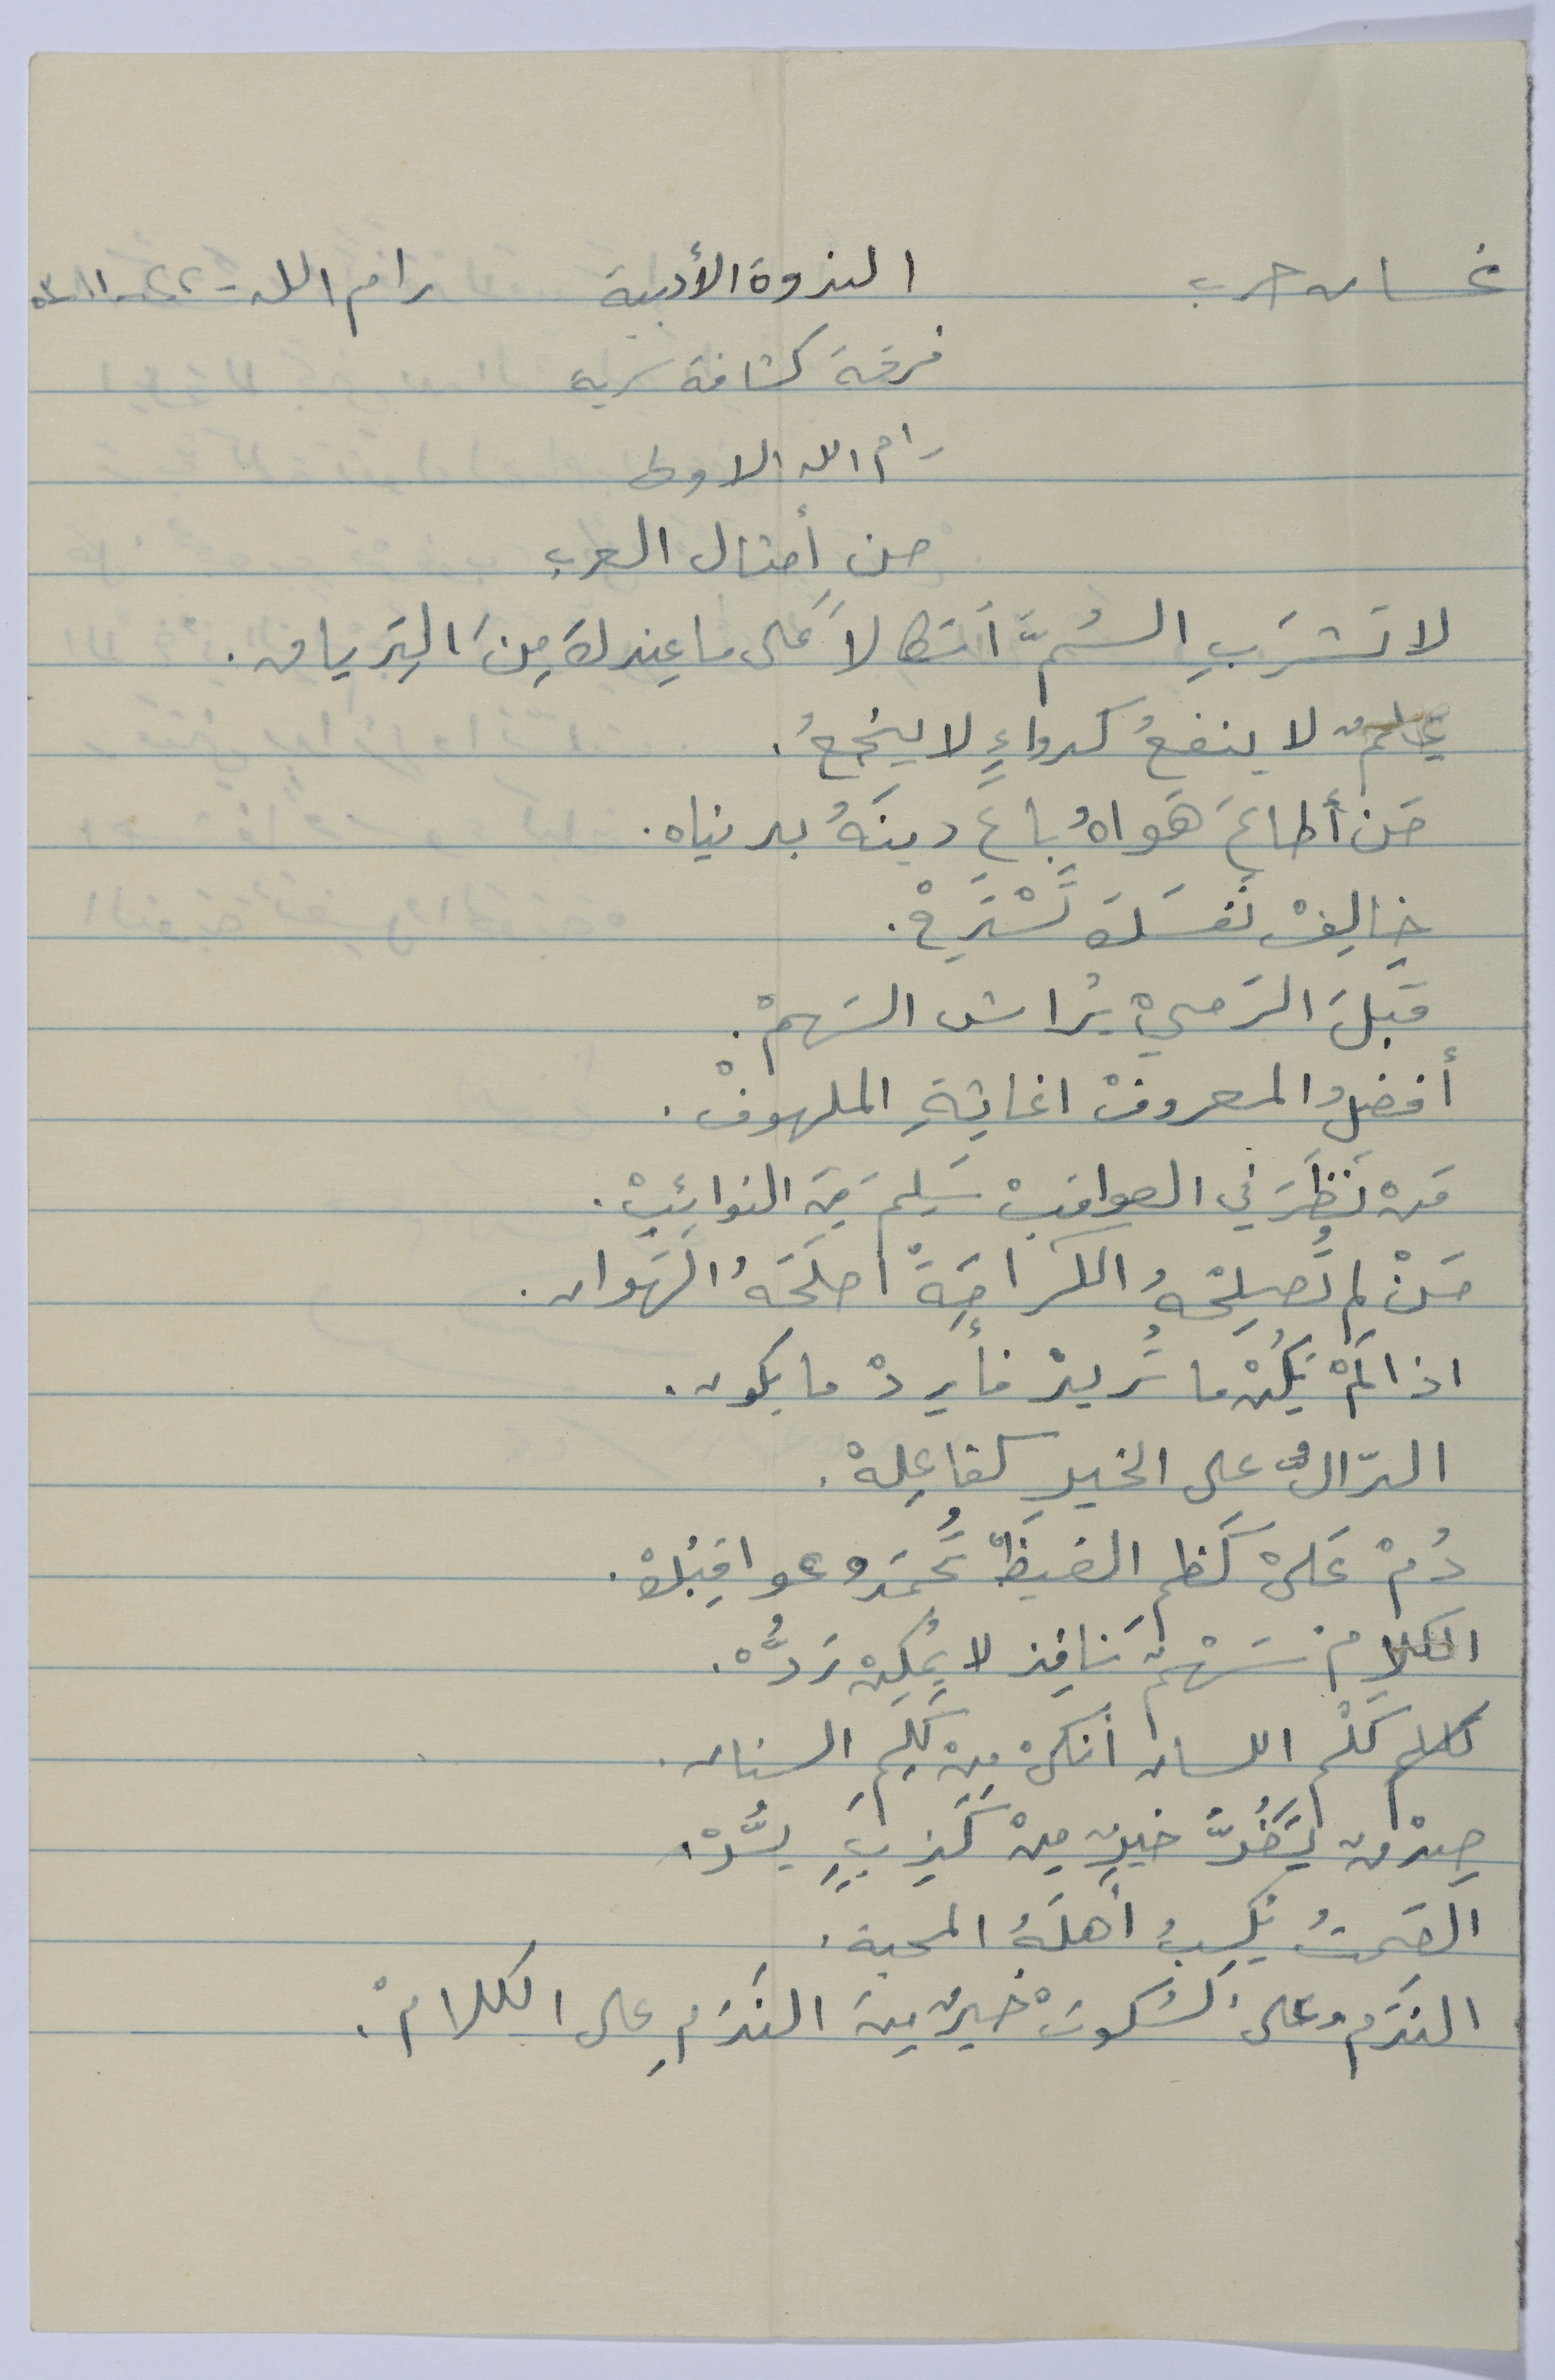 غسان حرب الندوة الأدبية رام الله - ٢٢-١١-٥٣
فرقة كشافة سرية
رام الله الاولى
من أمثال العرب
لا تَشرَبِ السُمَّ اتكالاً عَلى ما عِندكَ مِنَ التِرياق.
علمٌ لا ينفعُ كدواءٍ لا ينجعُ.
مَن أطاعَ هَواهُ باعَ دينَهُ بدنياه.
خالِفْ نَفسَكَ تَسْتَرِحْ.
قَبلَ الرَميْ يُراش السَهمْ.
أفضلُ المعروفْ اغاثةِ الملهوفْ.
مَنْ نَظَرَ في العواقبْ سَلِمَ مِنَ النوائِبْ.
مَنْ لم تُصلِحْهُ الكرامَةْ اصلَحَهُ الهَوان.
اذا لَمْ يَكُنْ ما تُريدْ فأرِدْ ما يكون.
الدّالُ على الخيرِ كفاعِلهْ.
دُمْ عَلىْ كَظمِ الغيظْ تُحمَدُ عواقِبُكْ.
الكلامُ سَهْمٌ نافِذ لا يُمكِنْ رَدُّه.
كَلْم اللسان أنكىْ مِنْ كَلِمِ السنان.
صِدْقٌ يَضُرُّ خيرٌ مِنْ كَذِبٍ يسُّرْ.
الصَمتُ يُكسِبُ أهلَهُ المحبة.
النَدَمُ على السُكوتْ خيرٌ مِنَ النَدَمِ على الكلامْ.